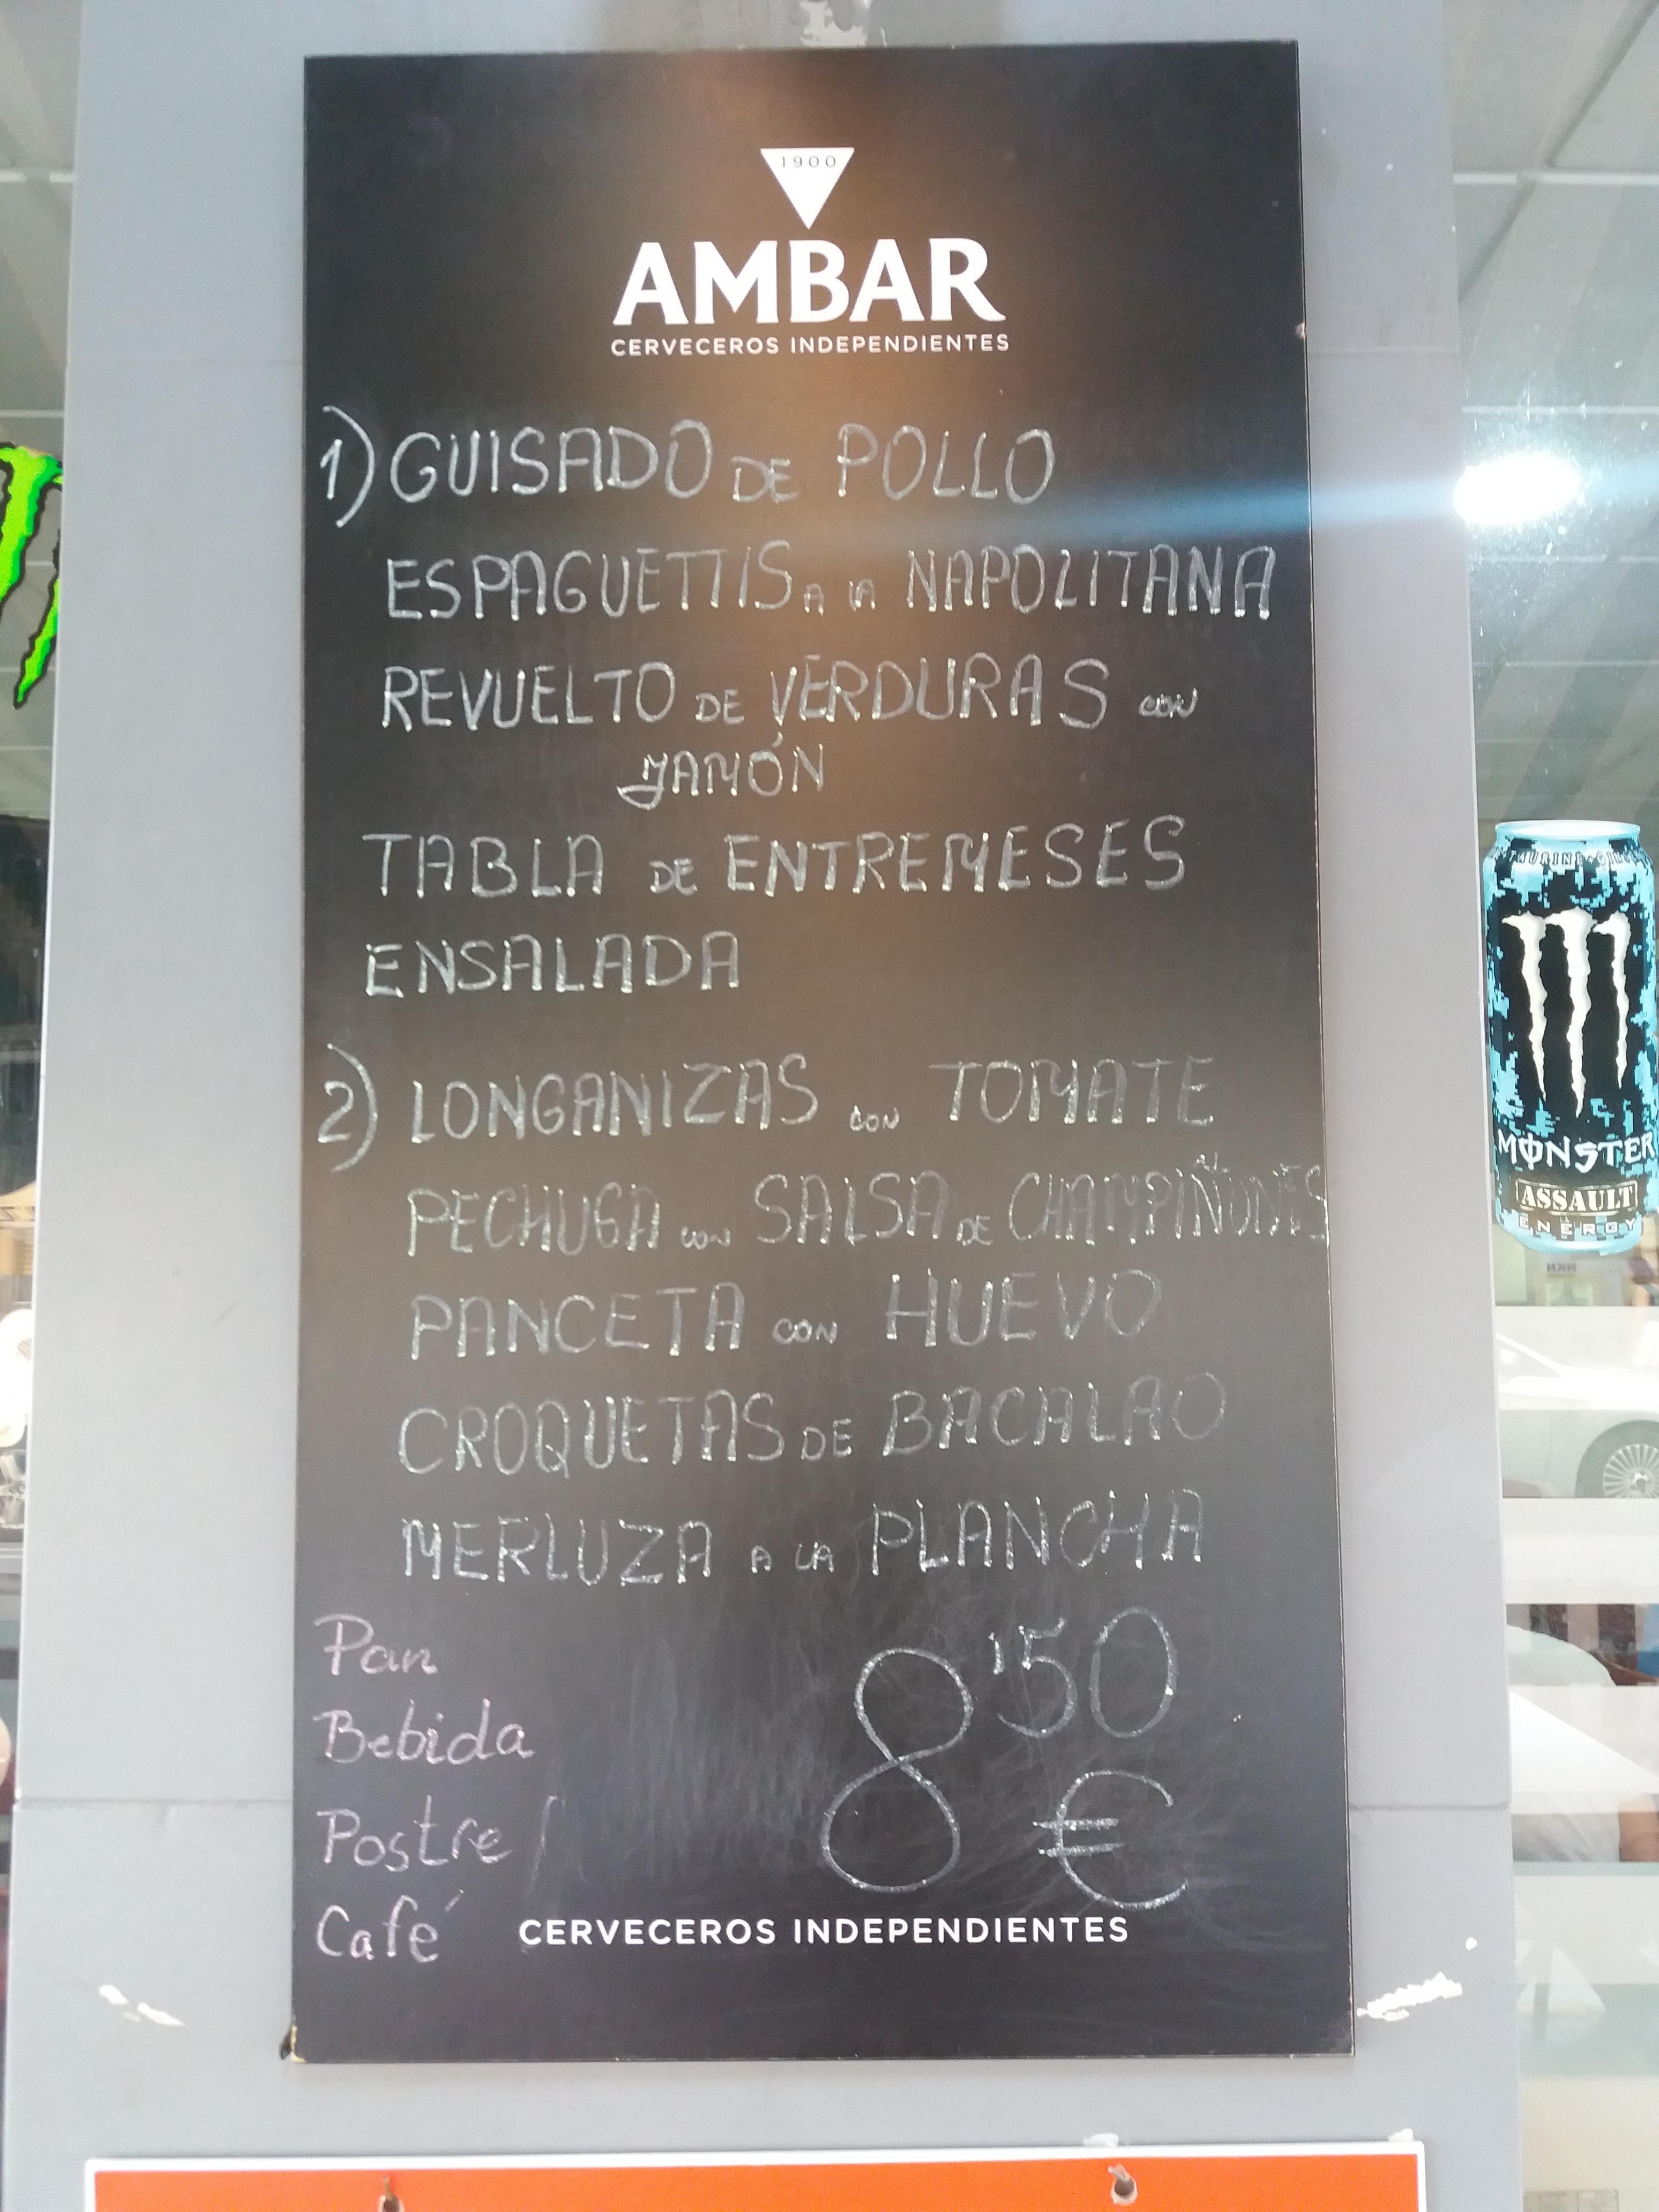 1900
AMBAR
CERVECEROS INDEPENDIENTES
1) GUISADO DE POLLO
ESPAGUETTIS A LA NAPOLITANA
REVUELTO DE VERDURAS CON
JAMÓN
TABLA DE ENTREMESES
ENSALADA
2) LONGANIZAS CON TOMATE
PECHUGA CON SALSA DE CHAMPIÑONES
PANCETA CON HUEVO
CROQUETAS DE BACALAO
MERLUZA A LA PLANCHA
Pan
Bebida
Postre /
Café
8'50
€
CERVECEROS INDEPENDIENTES
MONSTER
ASSAULT
ENERGY